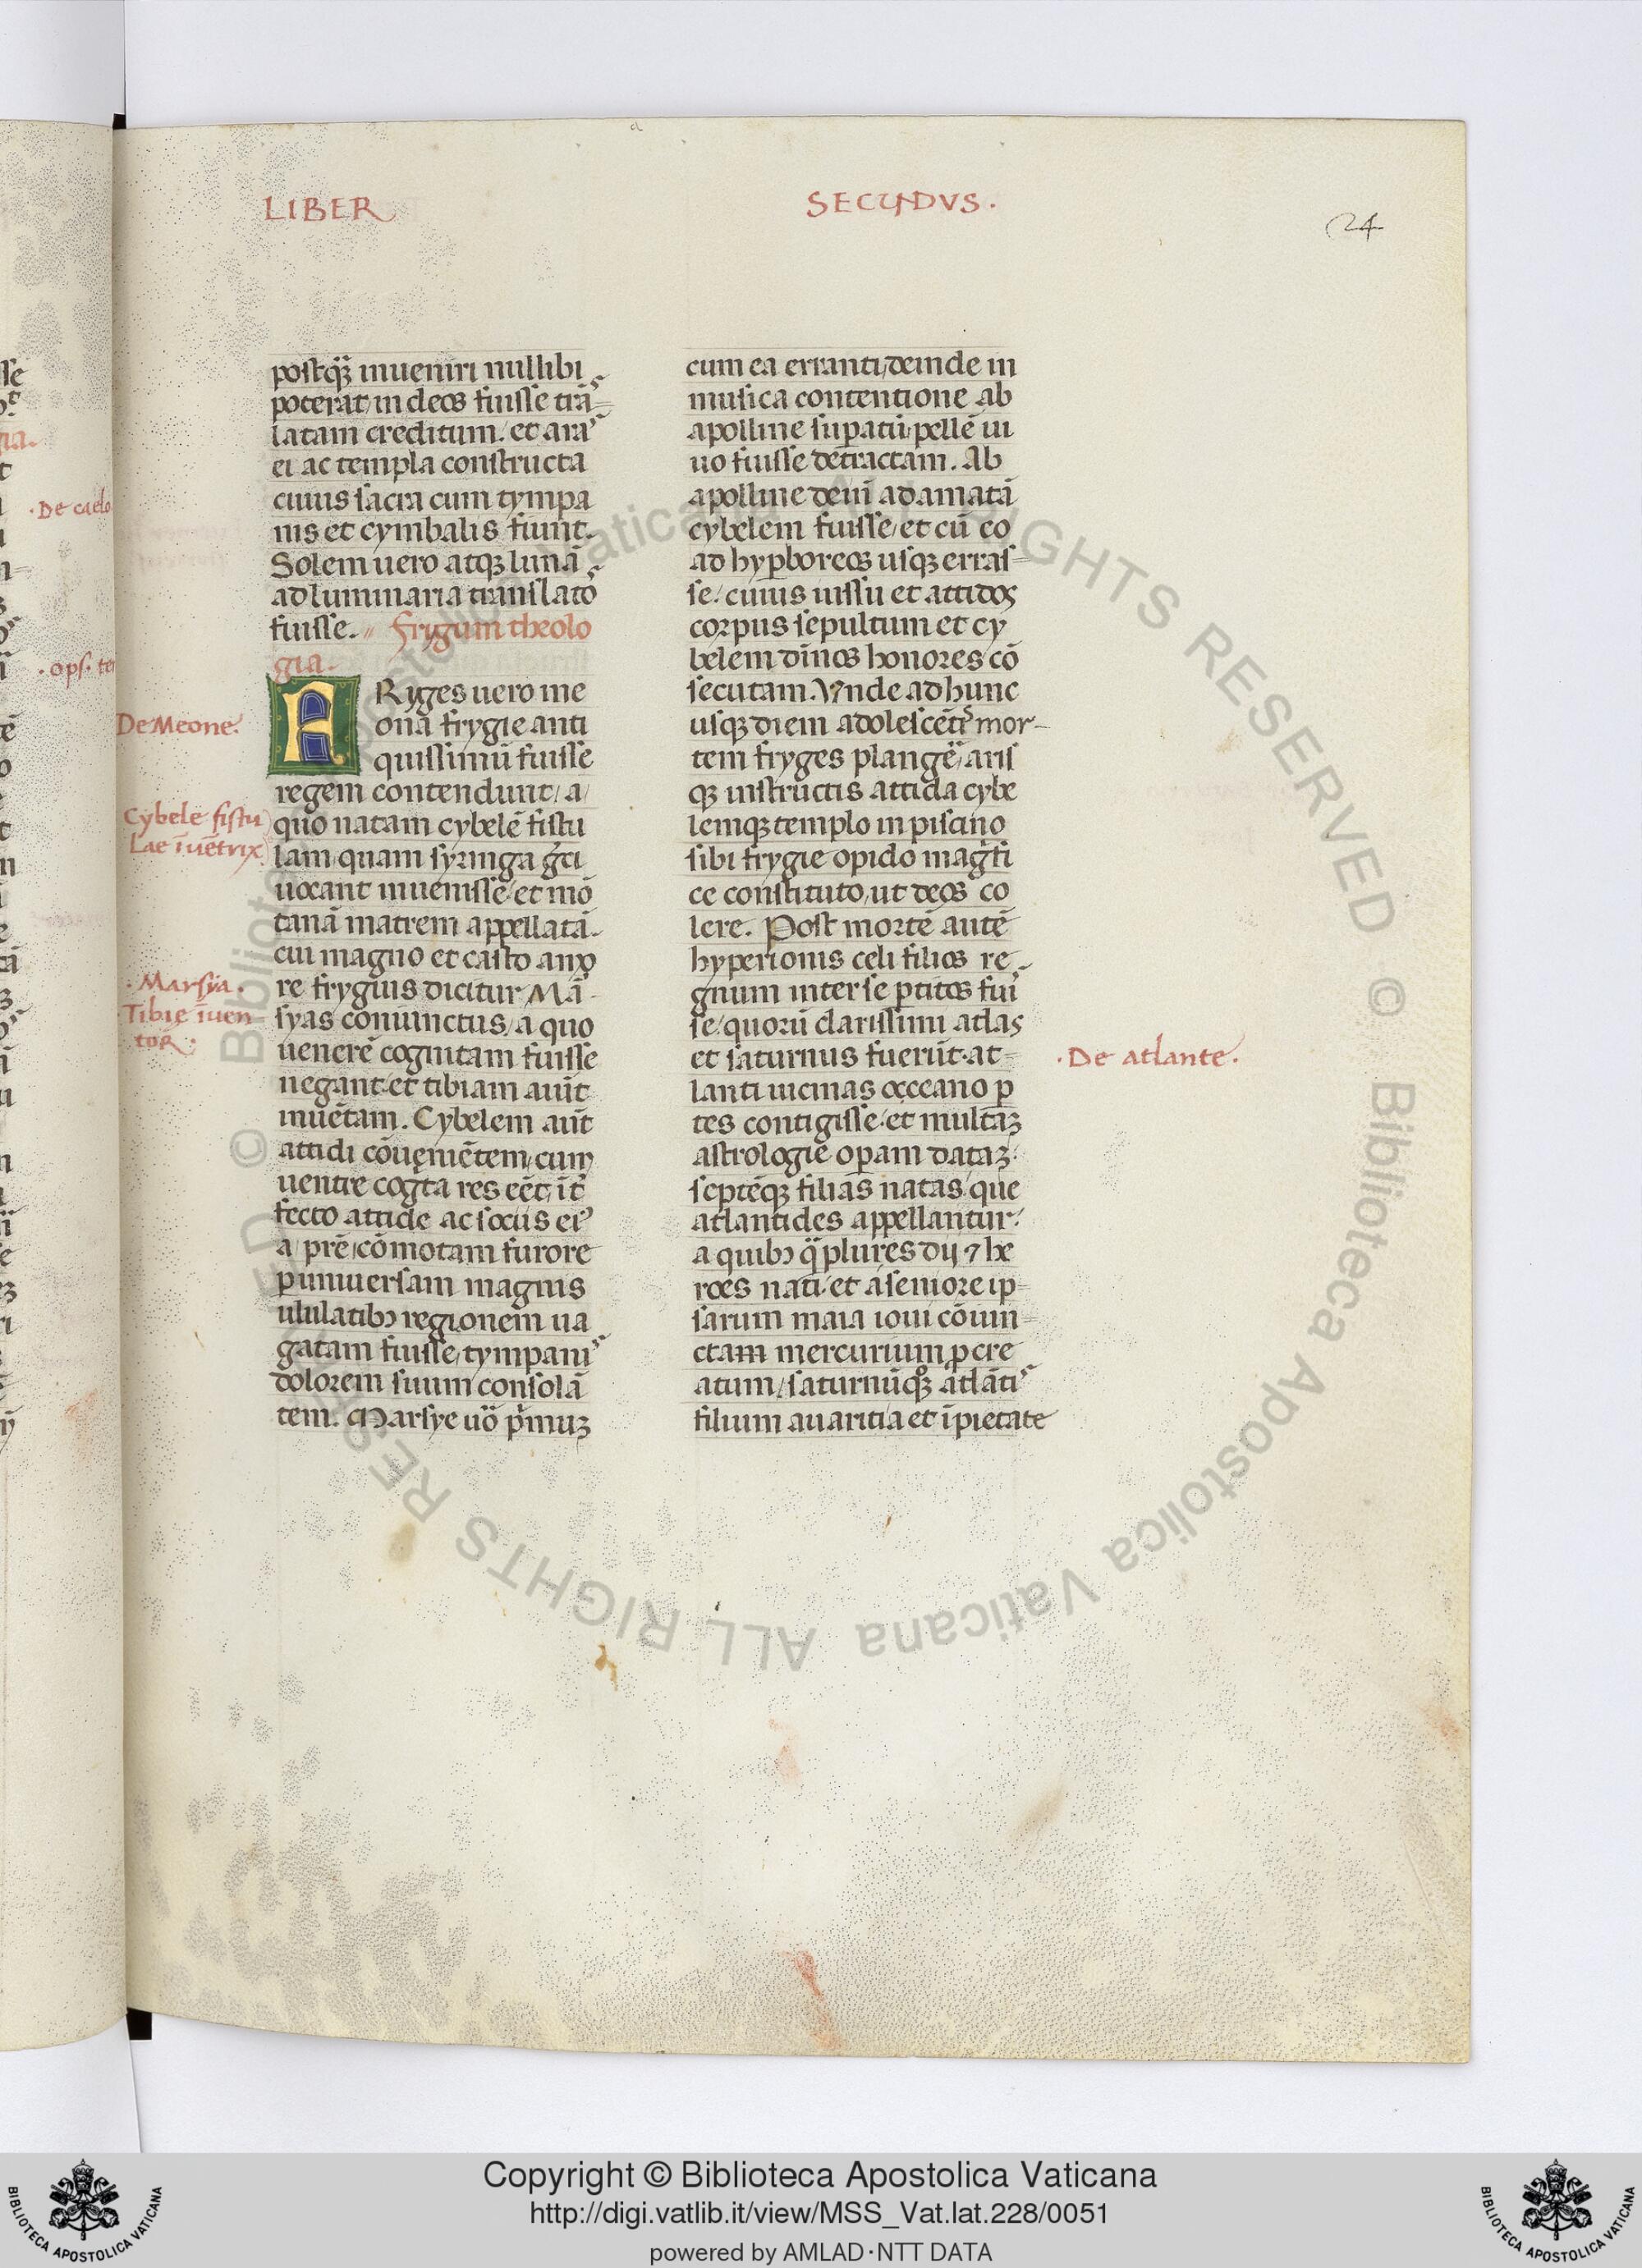 LIBER
SECUNDVS.
24
postq̃ʒ inueniri nullibi
poterat, in deos fuisse trã=
latam creditum. et aras
ei ac templa constructa
cuius sacra cum tympa
nis et cymbalis fiunt.
Solem uero atqʒ lunã
ad luminaria translatos
fuisse. Frygum theolo
gia.
FRyges uero me
onã frygie anti
quissimũ fuisse
regem contendunt, a
quo natam cybelẽ fistu
lam quam syringa gr̃ci
uocant inuenisse, et mõ
tanã matrem appellatã.
cui magno et casto amo
re frygius dicitur Mã
syas coniunctus, a quo
uenerẽ cognitam fuisse
negant, et tibiam aũt
inuẽtam. Cybelem aũt
attidi cõueniẽtem, cum
uentre cog̃ta res eẽt, ĩt̃
fecto attide ac sociis eiꝰ
a prẽ, cõmotam furore
p uniuersam magnis
ululatibꝫ regionem ua
gatam fuisse, tympanis
dolorem suum consolã
tem. Marsye uõ p̃muʒ
cum ea erranti, deinde in
musica contentione ab
apolline supatũ, pellẽ ui
uo fuisse detractam. Ab
apolline deni adamatã
cybelem fuisse, et cũ eo
ad hypboreos usqʒ erras=
se. cuius iussu et attidos
corpus sepultum et cy
belem diños honores cõ
secutam. Vnde ad hunc
usqʒ diem adolescẽtis mor-
tem fryges plangẽ, aris
qʒ instructis attida cybe
lemqʒ templo in piscino
sibi frygie opido mag̃fi
ce constituto, ut deos co
lere. Post mortẽ autẽ
hyperionis celi filios re
gnum inter se ptitos fuis
se, quorũ clarissimi atlas
et saturnus fuerũt. at=
lanti uicinas occeano p
tes contigisse, et multaʒ
astrologie opam dataʒ.
septẽqʒ filias natas, que
atlantides appellantur.
a quibꝫ q̃plures dij ⁊ he
roes nati, et a seniore ip=
sarum maia ioui cõiun=
ctam mercurium pcre
atum, saturnũqʒ atlãtis
filium auaritia et ĩpietate
De Meone.
Cybele fistu
Lae ĩuẽtrix
. Marsya .
Tibie ĩuen
tor̃ .
. De atlante .
. De caelo
. ops. te
Copyright © Biblioteca Apostolica Vaticana
http://digi.vatlib.it/view/MSS_Vat.lat.228/0051
powered by AMLAD·NTT DATA
BIBLIOTECA APOSTOLICA VATICANA
BIBLIOTECA APOSTOLICA VATICANA
© Biblioteca Apostolica Vaticana ALL RIGHTS RESERVED © Biblioteca Apostolica Vaticana ALL RIGHTS RESERVED